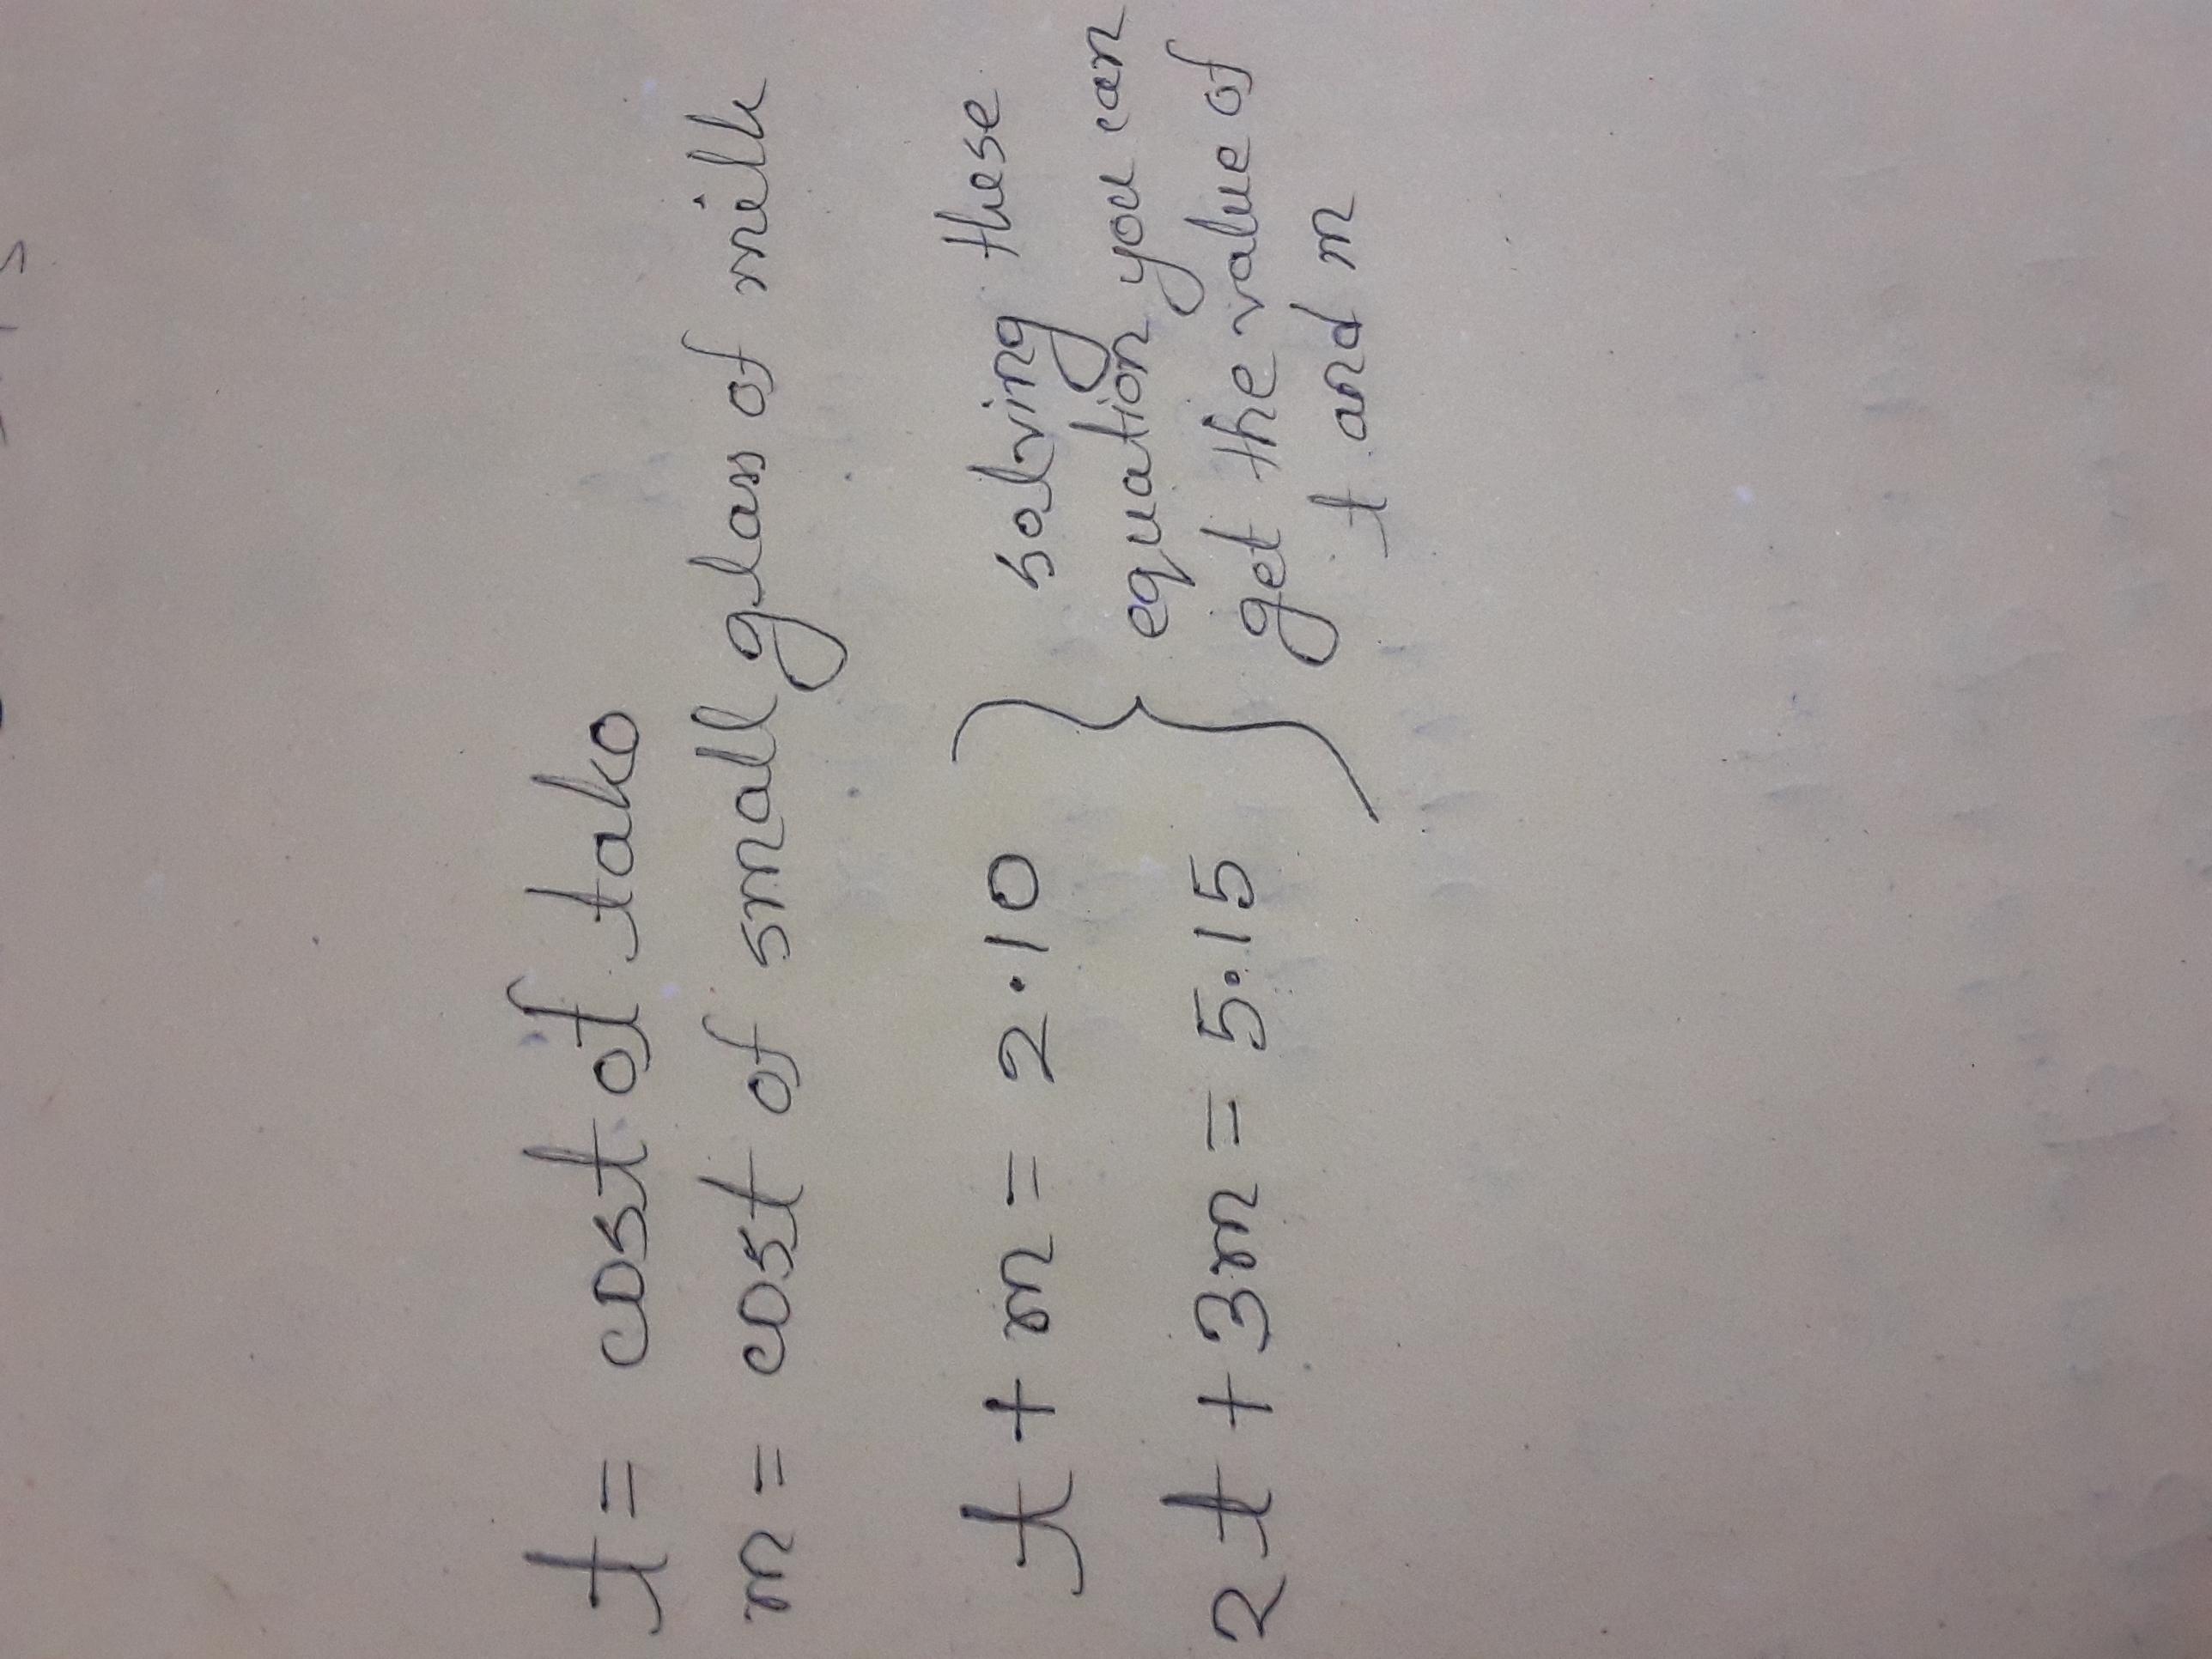 t = cost of tako
m = cost of small glass of milk
t + m = 2.10
2t + 3m = 5.15
solving these
equation you can
get the value of
t and m